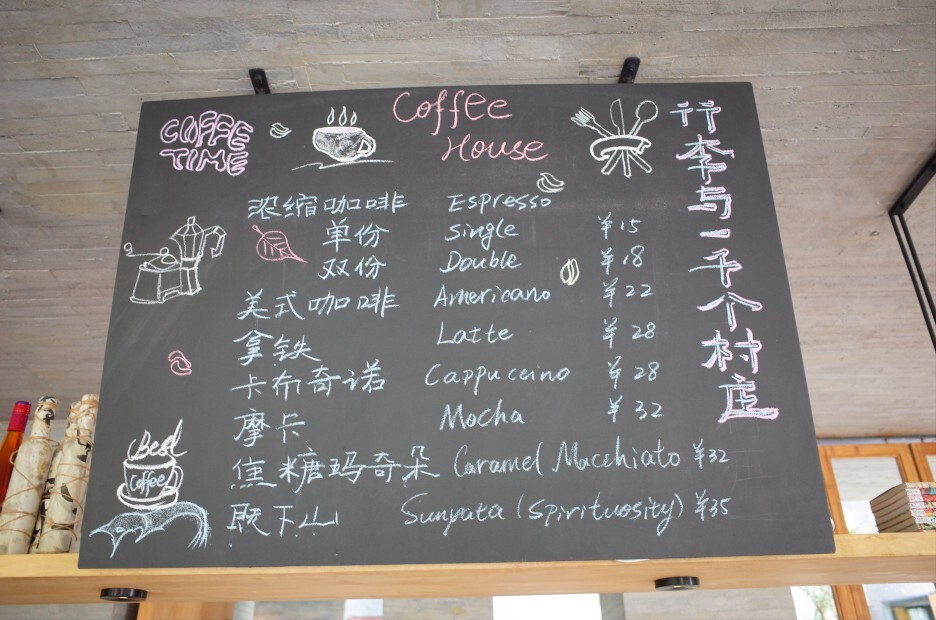 COFFEE
TIME
Coffee
House
浓缩咖啡 Espresso
单份 Single ¥15
双份 Double ¥18
美式咖啡 Americano ¥22
拿铁 Latte ¥28
卡布奇诺 Cappuccino ¥28
摩卡 Mocha ¥32
焦糖玛奇朵 Caramel Macchiato ¥32
下山 Sunyata (Spirituosity) ¥35
Best
Coffee
行李与一千个村庄